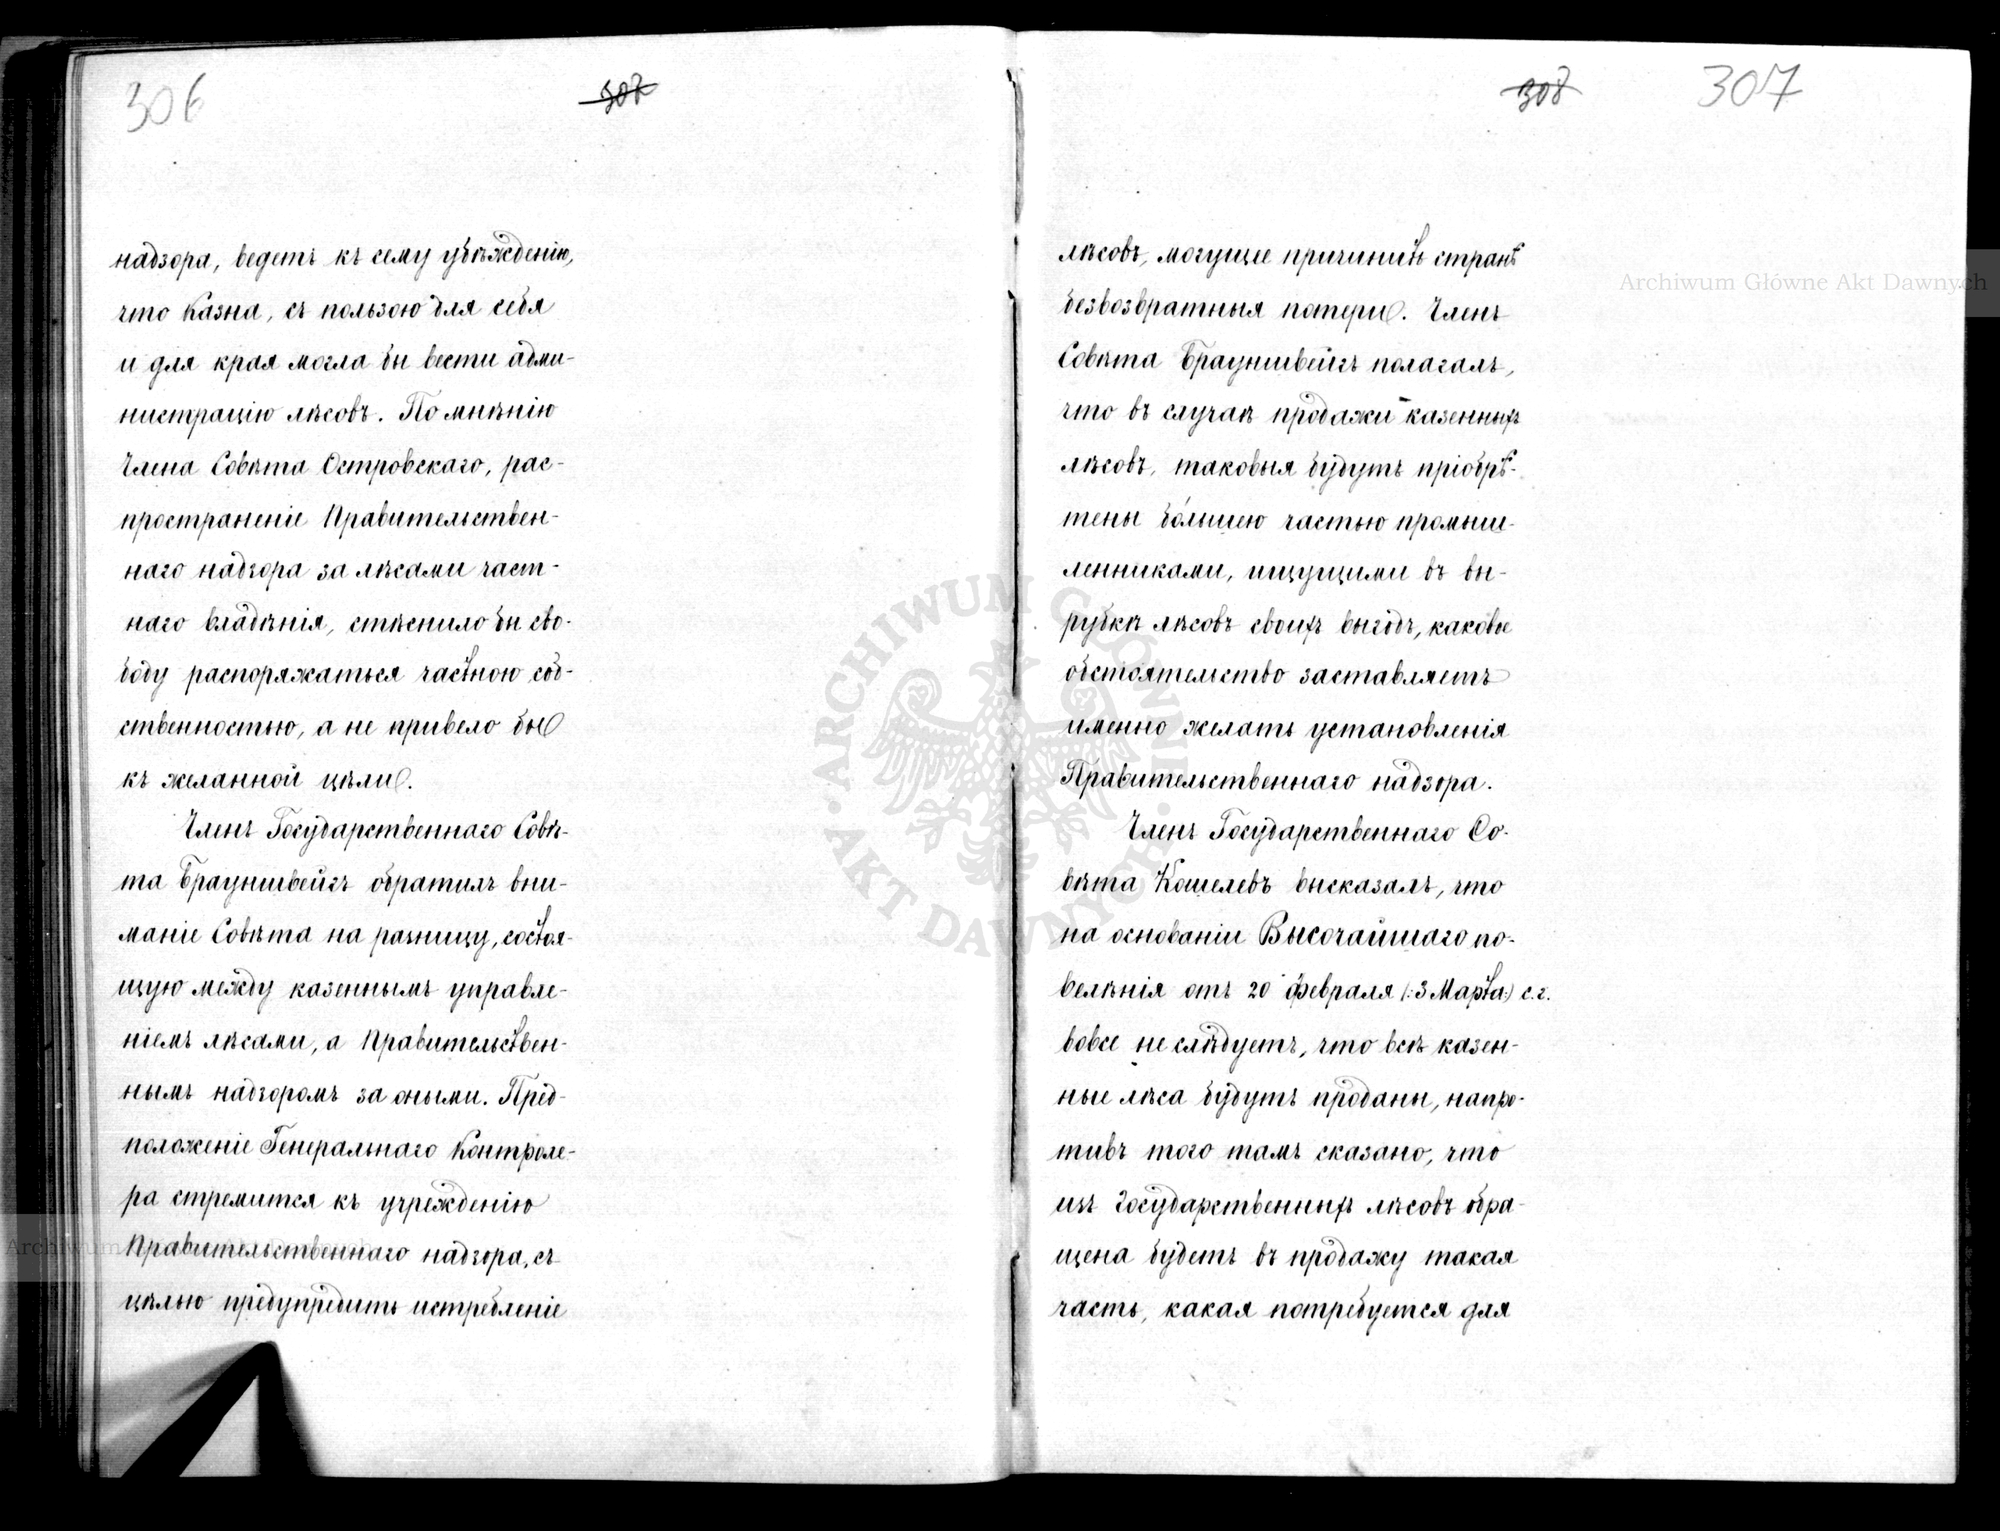 306
307
надзора, ведетъ къ сему убѣжденію,
что Казна, съ пользою для себя
и для края могла бы вести адми-
нистрацію лѣсовъ. По мнѣнію
Члена Совѣта Островскаго, рас-
пространеніе Правительствен-
наго надзора за лѣсами част-
наго владѣнія, стѣснило бы сво-
боду распоряжаться частною соб-
ственностью, а не привело бы
къ желанной цѣли.
Членъ Государственнаго Совѣ-
та Брауншвейгъ обратилъ вни-
маніе Совѣта на разницу, состоя-
щую между казеннымъ управле-
ніемъ лѣсами, а Правительствен-
нымъ надзоромъ за оными. Пред-
положеніе Генеральнаго Контроле-
ра стремится къ учрежденію
Правительственнаго надзора, съ
цѣлью предупредить истребленіе
308
307
лѣсовъ, могущее причинить странѣ
безвозвратныя потери. Членъ
Совѣта Брауншвейгъ полагалъ,
что въ случаѣ продажи казенныхъ
лѣсовъ, таковыя будутъ пріобрѣ-
тены бóльшею частью промыш-
ленниками, ищущими въ вы-
рубкѣ лѣсовъ своихъ выгодъ, каковое
обстоятельство заставляетъ
именно желать установленія
Правительственнаго надзора.
Членъ Государственнаго Со-
вѣта Кошелевъ высказалъ, что
на основаніи Высочайшаго по-
велѣнія отъ 20 Февраля (:3 Марта:) с.г.
вовсе не слѣдуетъ, что всѣ казен-
ные лѣса будутъ проданы, напро-
тивъ того тамъ сказано, что
изъ Государственныхъ лѣсовъ обра-
щена будетъ въ продажу такая
часть, какая потребуется для
Archiwum Główne Akt Dawnych
ARCHIWUM GŁÓWNE · AKT DAWNYCH ·